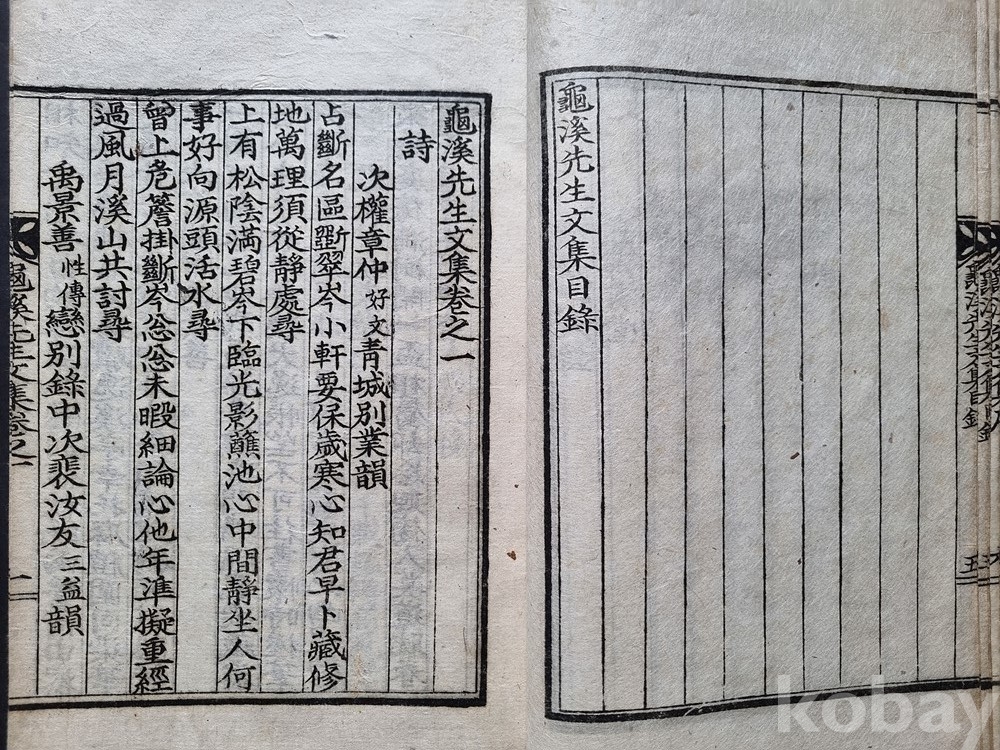 龜溪先生文集目錄
五
龜溪先生文集目錄
龜溪先生文集卷之一
詩
次權章仲好文青城別業韻
占斷名區斲翠岑小軒要保歲寒心知君早卜藏修
地萬理須從靜處尋
上有松陰滿碧岑下臨光影蘸池心中間靜坐人何
事好向源頭活水尋
曾上危簷掛斷岑忩忩未暇細論心他年準擬重經
過風月溪山共討尋
禹景善性傳戀別錄中次裴汝友三益韻
龜溪先生文集卷之一
一
kobay